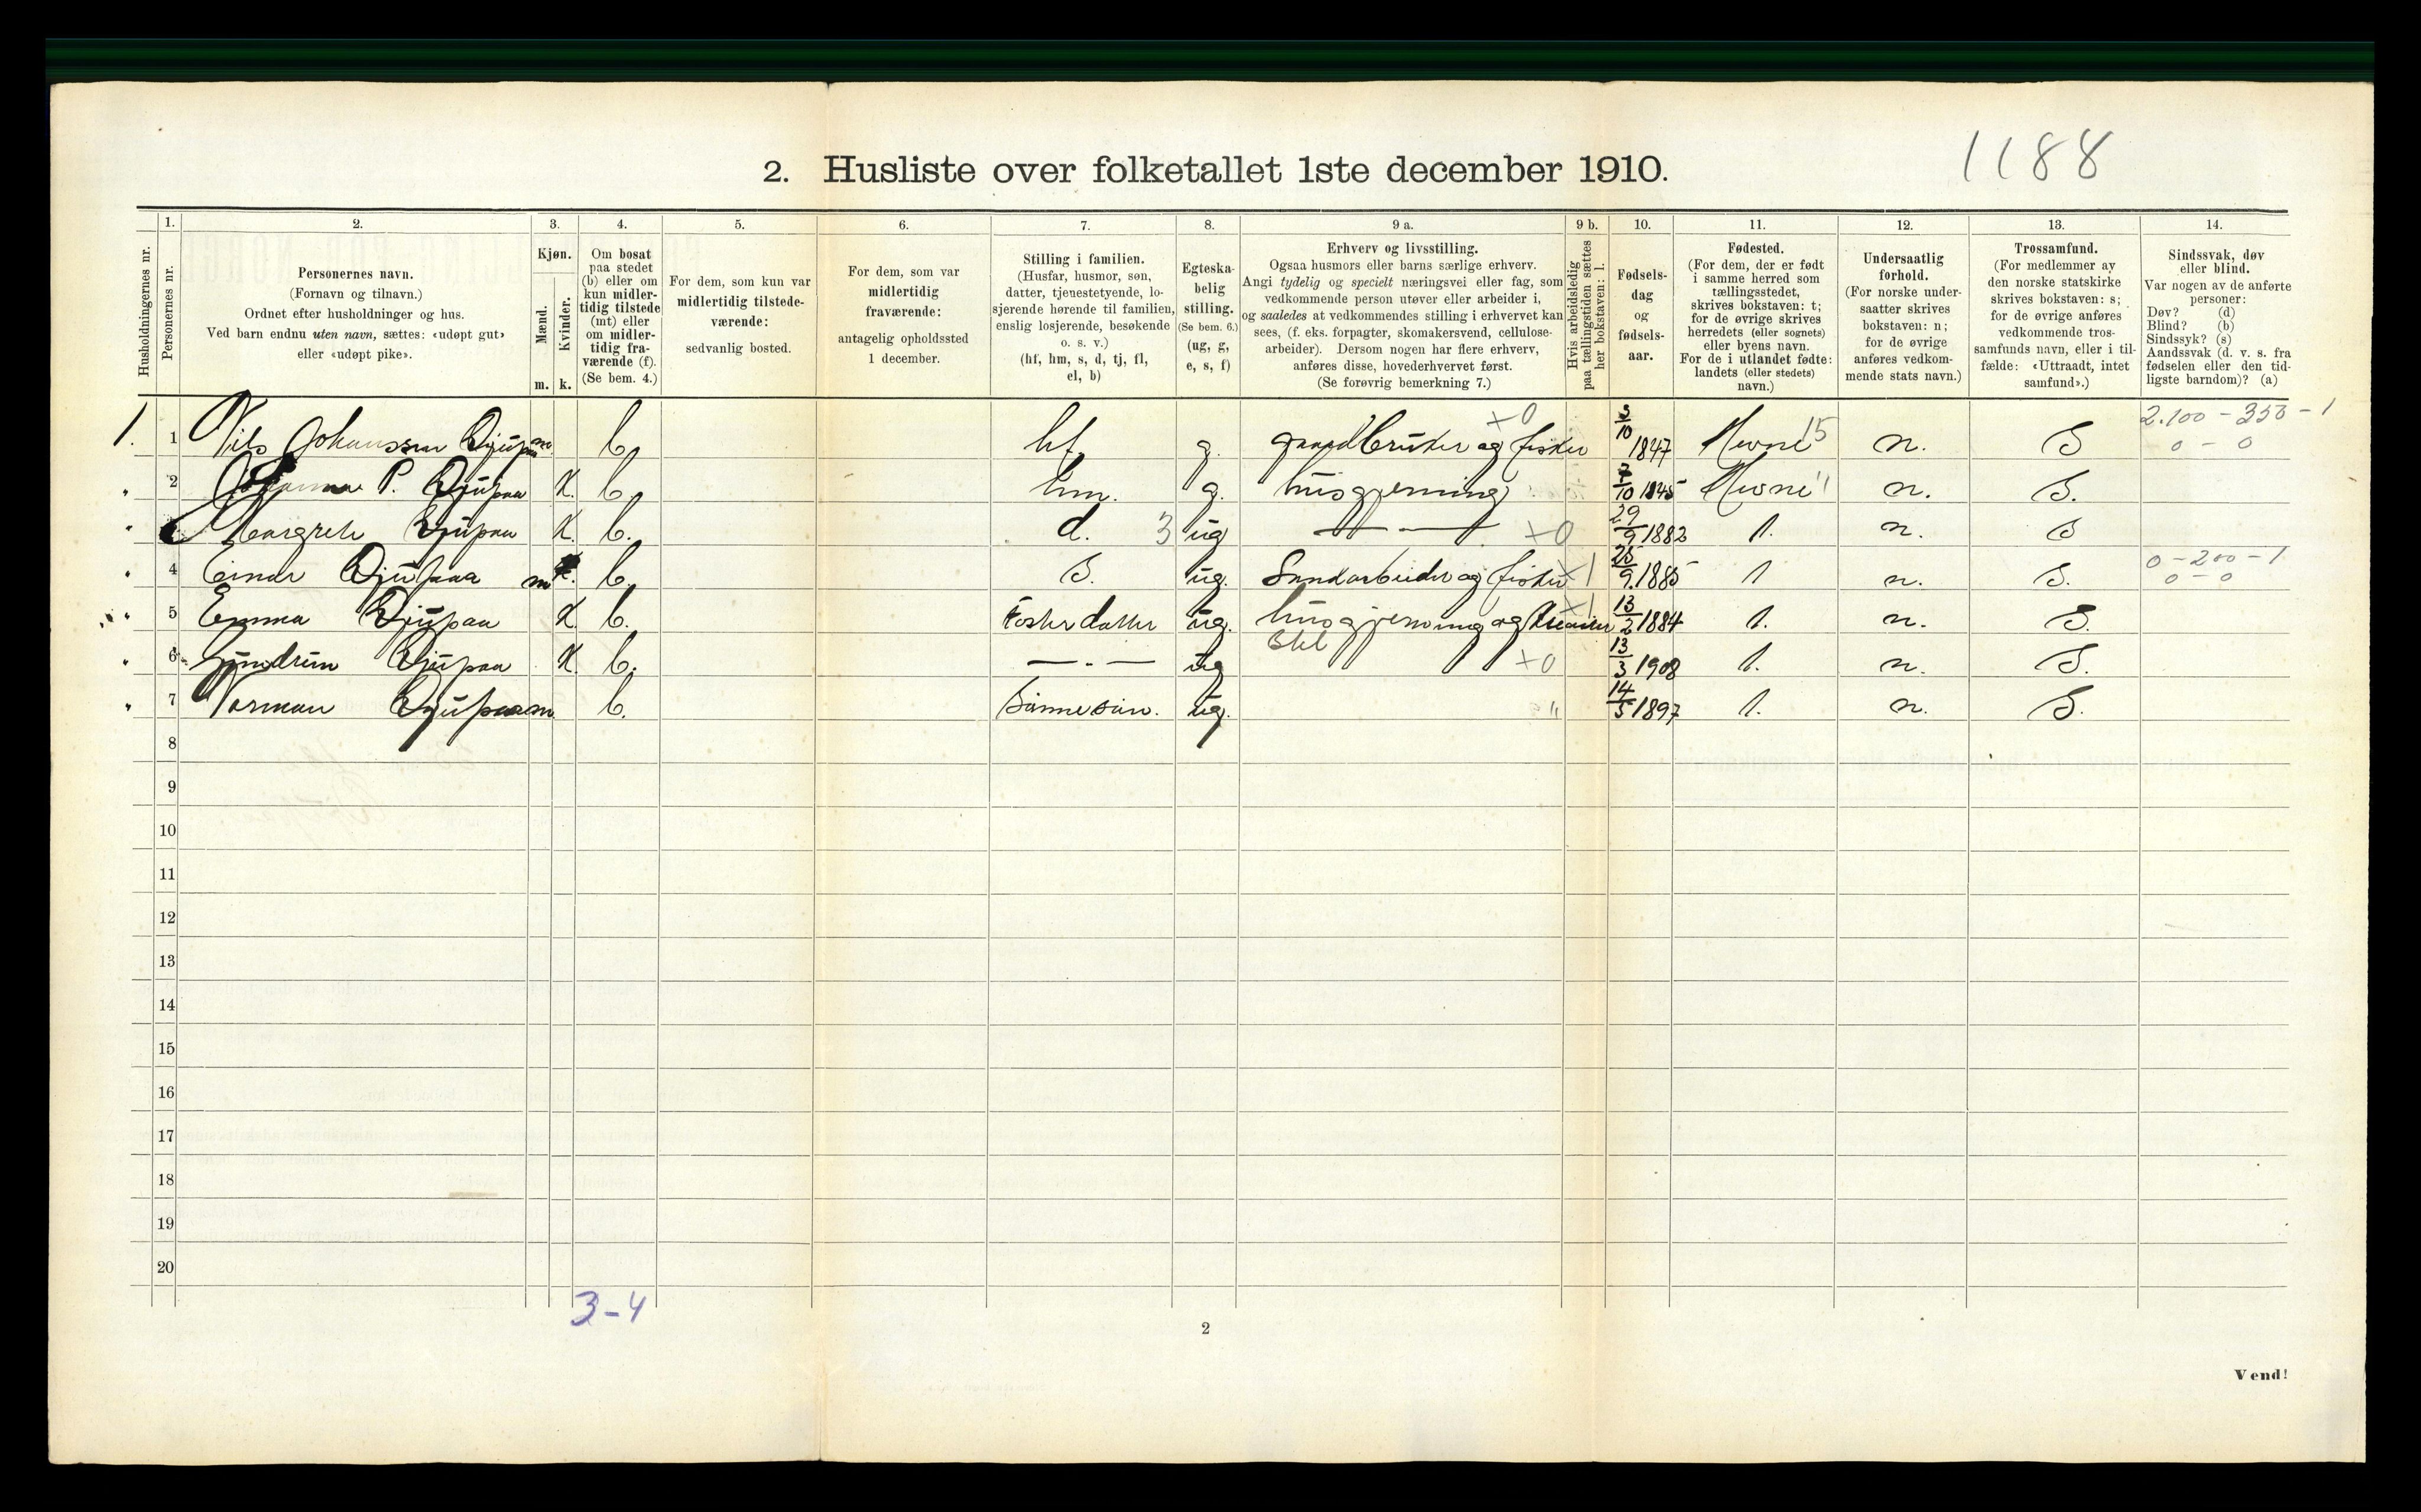 1188
2. Husliste over folketallet 1ste december 1910.
Husholdningernes nr.
1. Personernes nr.
2. Personernes navn. (Fornavn og tilnavn.) Ordnet efter husholdninger og hus. Ved barn endnu uten navn, sættes: «udøpt gut» eller «udøpt pike».
3. Kjøn. Mænd. m. Kvinder. k.
4. Om bosat paa stedet (b) eller om kun midlertidig tilstede (mt) eller om midlertidig fraværende (f). (Se bem. 4.)
5. For dem, som kun var midlertidig tilstedeværende: sedvanlig bosted.
6. For dem, som var midlertidig fraværende: antagelig opholdssted 1 december.
7. Stilling i familien. (Husfar, husmor, søn, datter, tjenestetyende, losjerende hørende til familien, enslig losjerende, besøkende o. s. v.) (hf, hm, s, d, tj, fl, el, b)
8. Egteskabelig stilling. (Se bem. 6.) (ug, g, e, s, f)
9 a. Erhverv og livsstilling. Ogsaa husmors eller barns særlige erhverv. Angi tydelig og specielt næringsvei eller fag, som vedkommende person utøver eller arbeider i, og saaledes at vedkommendes stilling i erhvervet kan sees, (f. eks. forpagter, skomakersvend, cellulosearbeider). Dersom nogen har flere erhverv, anføres disse, hovederhvervet først. (Se forøvrig bemerkning 7.)
9 b. Hvis arbeidsledig paa tællingstiden sættes her bokstaven: l.
10. Fødselsdag og fødselsaar.
11. Fødested. (For dem, der er født i samme herred som tællingsstedet, skrives bokstaven: t; for de øvrige skrives herredets (eller sognets) eller byens navn. For de i utlandet fødte: landets (eller stedets) navn.)
12. Undersaatlig forhold. (For norske undersaatter skrives bokstaven: n; for de øvrige anføres vedkommende stats navn.)
13. Trossamfund. (For medlemmer av den norske statskirke skrives bokstaven: s; for de øvrige anføres vedkommende trossamfunds navn, eller i tilfælde: «Uttraadt, intet samfund».)
14. Sindssvak, døv eller blind. Var nogen av de anførte personer: Døv? (d) Blind? (b) Sindssyk? (s) Aandssvak (d. v. s. fra fødselen eller den tidligste barndom)? (a)
1. 1 Nils Johanssen Djupaa m b. hf. g. gaardbruker og fisker x0 3/10 1847 Hevne 15 n. S 2.100 - 350 - 1 0 - 0
" 2 Johanna P. Djupaa K. b. hm. g. husgjerning 7/10 1845 Hevne " n. S.
" Margrete Djupaa K. b. d. 3 ug — - — x0 29/9 1882 t. n. S
" 4 Einar Djupaa m b. S. ug. og fisker x1 25/9 1885 t n. S. 0 - 200 - 1 0 - 0
" 5 Emma Djupaa K. b. Fosterdatter ug. husgjerning og stel x1 13/2 1884 t. n. S.
" 6 Gundrun Djupaa K b. — - — ug x0 13/3 1908 t. n. S.
" 7 Norman Djupaa m b. Sønnesøn. ug. " 14/5 1897 t. n. S.
8
9
10
11
12
13
14
15
16
17
18
19
20
3-4
2
Vend!